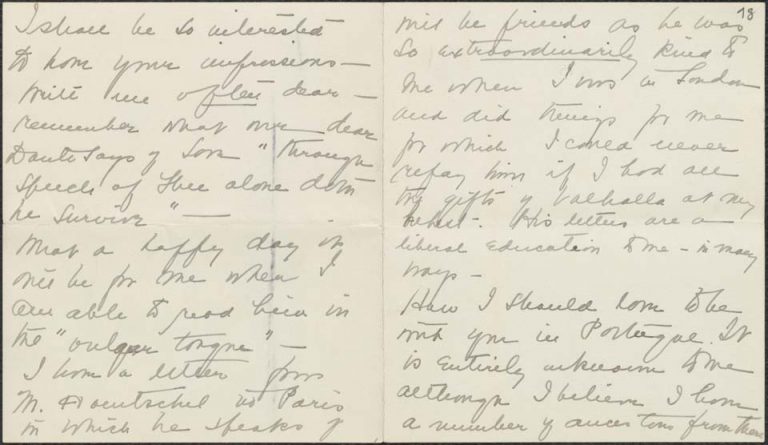 I shall be so interested
to have your impressions—
write me often dear—
remember what our dear
Dante says of Love "through
speech of thee alone doth
he survive"—
what a happy day it
will be for me when I
am able to read him in
the "vulgar tongue"—
I have a letter from
M. Hoentschel in Paris
in which he speaks of
18
will be friends as he was
so extraordinarily kind to
me when I was in London
and did things for me
for which I could never
repay him if I had all
the gifts of Valhalla at my
behest. His letters are a
liberal education to me - in many
ways -
How I should love to be
with you in Portugal. It
is entirely unknown to me
although I believe I have
a number of ancestors from there